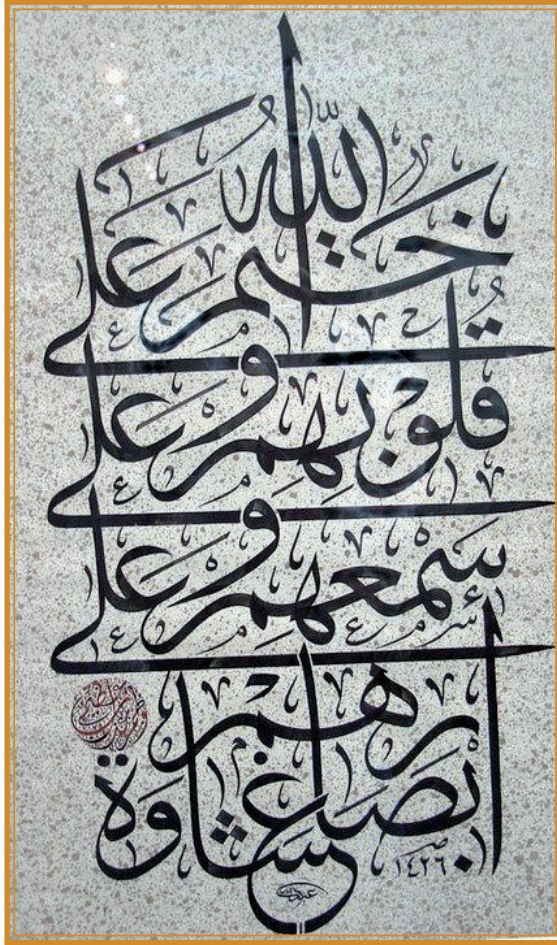 ختم الله على
قلوبهم وعلى
سمعهم وعلى
ابصارهم
غشاوة
١٤٢٦